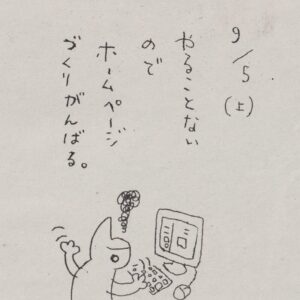 9/5(土)
やることない
ので
ホームページ
づくりがんばる。